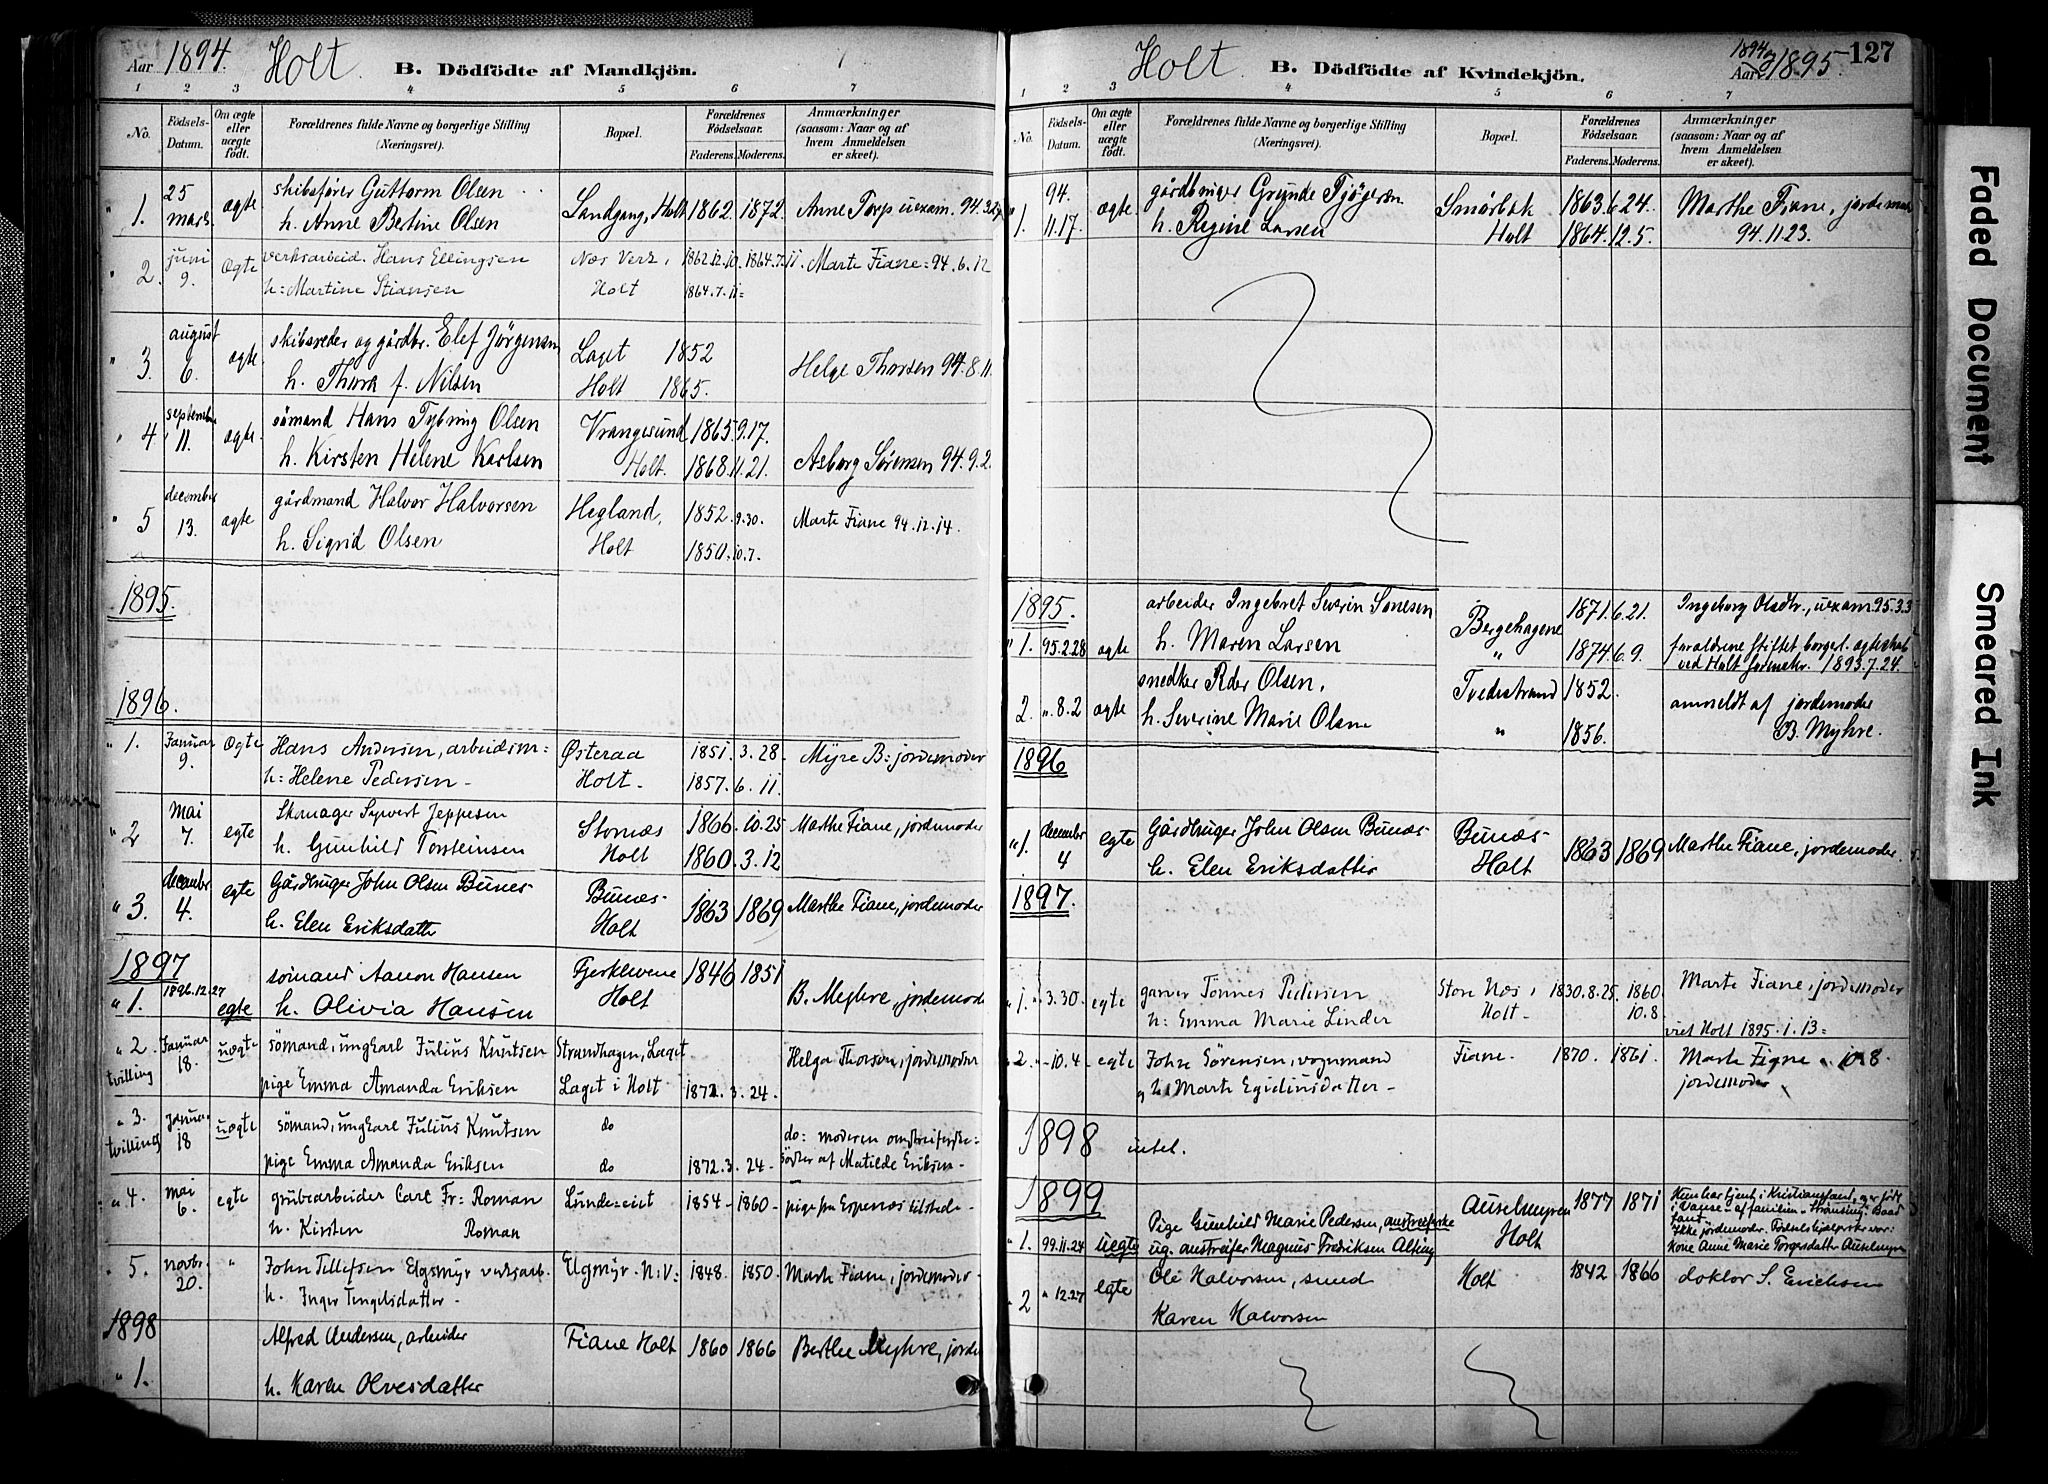 Aar 1894. Holt. B. Dödfödte af Mandkjön.
1 2 3 4 5 6 7
No. Födsels-Datum. Om ægte eller uægte födt. Forældrenes fulde Navne og borgerlige Stilling (Næringsvei). Bopæl. Forældrenes Födselsaar. Faderens. Moderens. Anmærkninger (saasom: Naar og af hvem Anmeldelsen er skeet).
" 1. 25 mars. ægte skibsfører Guttorm Olsen
h. Anne Bertine Olsen Sandgang, Holt 1862. 1872. Anne Torp uexam. 94.3.
" 2. juni 9. Ogte verksarbeid. Hans Ellingsen Næs Verk, 1862.12.10. 1864.7.11. Marte Fiane = 94.6.12
h: Martine Stiansen Holt 1864.7.11=
" 3. august 6. ægte skibsreder og gårdbr. Elef Jörgensen Laget 1852
h. Thora f. Nilsen Holt 1865. Helge Thorsen 94.8.11.
" 4 september 11. ægte sömand Hans Tybring Olsen Vrangesund 1865.9.17.
h. Kirsten Helene Karlsen Holt. 1868.11.21. Asborg Sørensen 94.9.2
" 5 december 13. ægte gårdmand Halvor Halvorsen Hegland, 1852.9.30. Marte Fiane 94.12.14.
h. Sigrid Olsen Holt 1850.10.7.
1895.
1896.
" 1. Januar 9. Ogte Hans Andersen, arbeidsm= Østeraa 1851. 3. 28. Myre B: jordemoder
h: Helene Pedersen - Holt. 1857. 6. 11.
" 2 Mai 7. egte Skomager Syvert Jeppesen Stornæs 1866. 10. 25 Marthe Fiane, jordemoder
h. Gunhild Torsteinsen Holt 1860. 3. 12
" 3. decembr. 4. egte Gårdbruger John Olsen Bunes- Bunæs- 1863 1869 Marthe Fiane, jordemoder
h. Elen Eriksdatter Holt
1897
" 1. 1896.12.27 egte sömand Aanon Hansen Fjerkleivene 1846 1851
h. Olivia Hansen Holt B. Myhre, jordemode
" 2 tvilling Januar 18. uægte sömand, ungkarl Julius Knutsen Strandhagen, Laget Helga Thorsen, jordemoder
pige Emma Amanda Eriksen Laget i Holt 1872. 3. 24.
" 3. tvilling Januar 18 uægte sömand, ungkarl Julius Knutsen do do: moderen omstreiferske=
pige Emma Amanda Eriksen do 1872.3. 24- födter af Matilde Eriksen-
" 4. mai 6. egte grubearbeider Carl Fr: Roman Lunde=eiet 1854- 1860- pige fra Espenæs tilstede-
h. Kirsten Roman
" 5. novbr. 20. " John Tellefsen Elgsmyr verksarb. Elgsmyr. N.V= 1848. 1850. Marte Fiane, jordemoder-
h. Inger Tengelsdatter-
1898
" 1. Alfred Andersen, arbeider Fiane Holt 1860 1866 Berthe Myhre, jorde
h. Karen Olvesdatter
Holt. B. Dödfödte af Kvindekjön. Aar 1894 og 1895. 127
1 2 3 4 5 6 7
No. Födsels-Datum. Om ægte eller uægte födt. Forældrenes fulde Navne og borgerlige Stilling (Næringsvei). Bopæl. Forældrenes Födselsaar. Faderens. Moderens. Anmærkninger (saasom: Naar og af hvem Anmeldelsen er skeet).
" 1. 94. 11.17. ægte gårdbruger Grunde Tjögersen Smørlok 1863.6.24. Marthe Fiane, jordemoder
h. Regine Larsen Holt 1864.12.5. 94.11.23.
1895.
" 1. 95.2.28 ægte arbeider Ingebret Severin Sønesen Bergehagene 1871.6.21. Ingeborg Olsdtr., uexam. 95.3.3
h. Maren Larsen " 1874.6.9. foraldrene stiftet borgerl. egteskab
ved Holt 1893.7.24.
2. ".8.2 ægte snedker Peder Olsen, Tvedestrand 1852. anmeldt af jordemoder
h. Severine Marie Olsen " 1856. B. Myhre.
1896
" 1. decembr 4 egte Gårdbruger John Olsen Bunæs- Bunæs- 1863 1869 Marthe Fiane, jordemoder.
h. Elen Eriksdatter Holt
1897.
" 1. ". 3.30. egte garver Tönnes Pedersen Store Næs, 1830.8.25. 1860. 10.8. Marte Fiane, jordemoder
h: Emma Marie Linder Holt- viet Holt 1895.1.13=
" 2. "- 10.4- egte John Sörensen, vognmand Fiane. 1870. 1861. Marte Fiane " 10.8
h: Marte Egidiusdatter- jordemoder
1898 intet.
1899
" 1. 99.11.24 uegte Pige Gunhild Marie Pedersen, omstreiferske Auselmyren 1877 1871
ug. omstreifer Magnus Fredriksen Alting Holt
Hun har tjent i Kristianssand, er født
i Vanse- af familien-
Ikke jordemoder. Fødselshjelperske var:
Kone Anne Marie Torgersdatter Auselmyren
" 2 " 12.27 egte Ole Halvorsen, smed Holt 1842 1866 doktor S. Erichsen
Karen Halvorsen
Faded Document
Smeared Ink